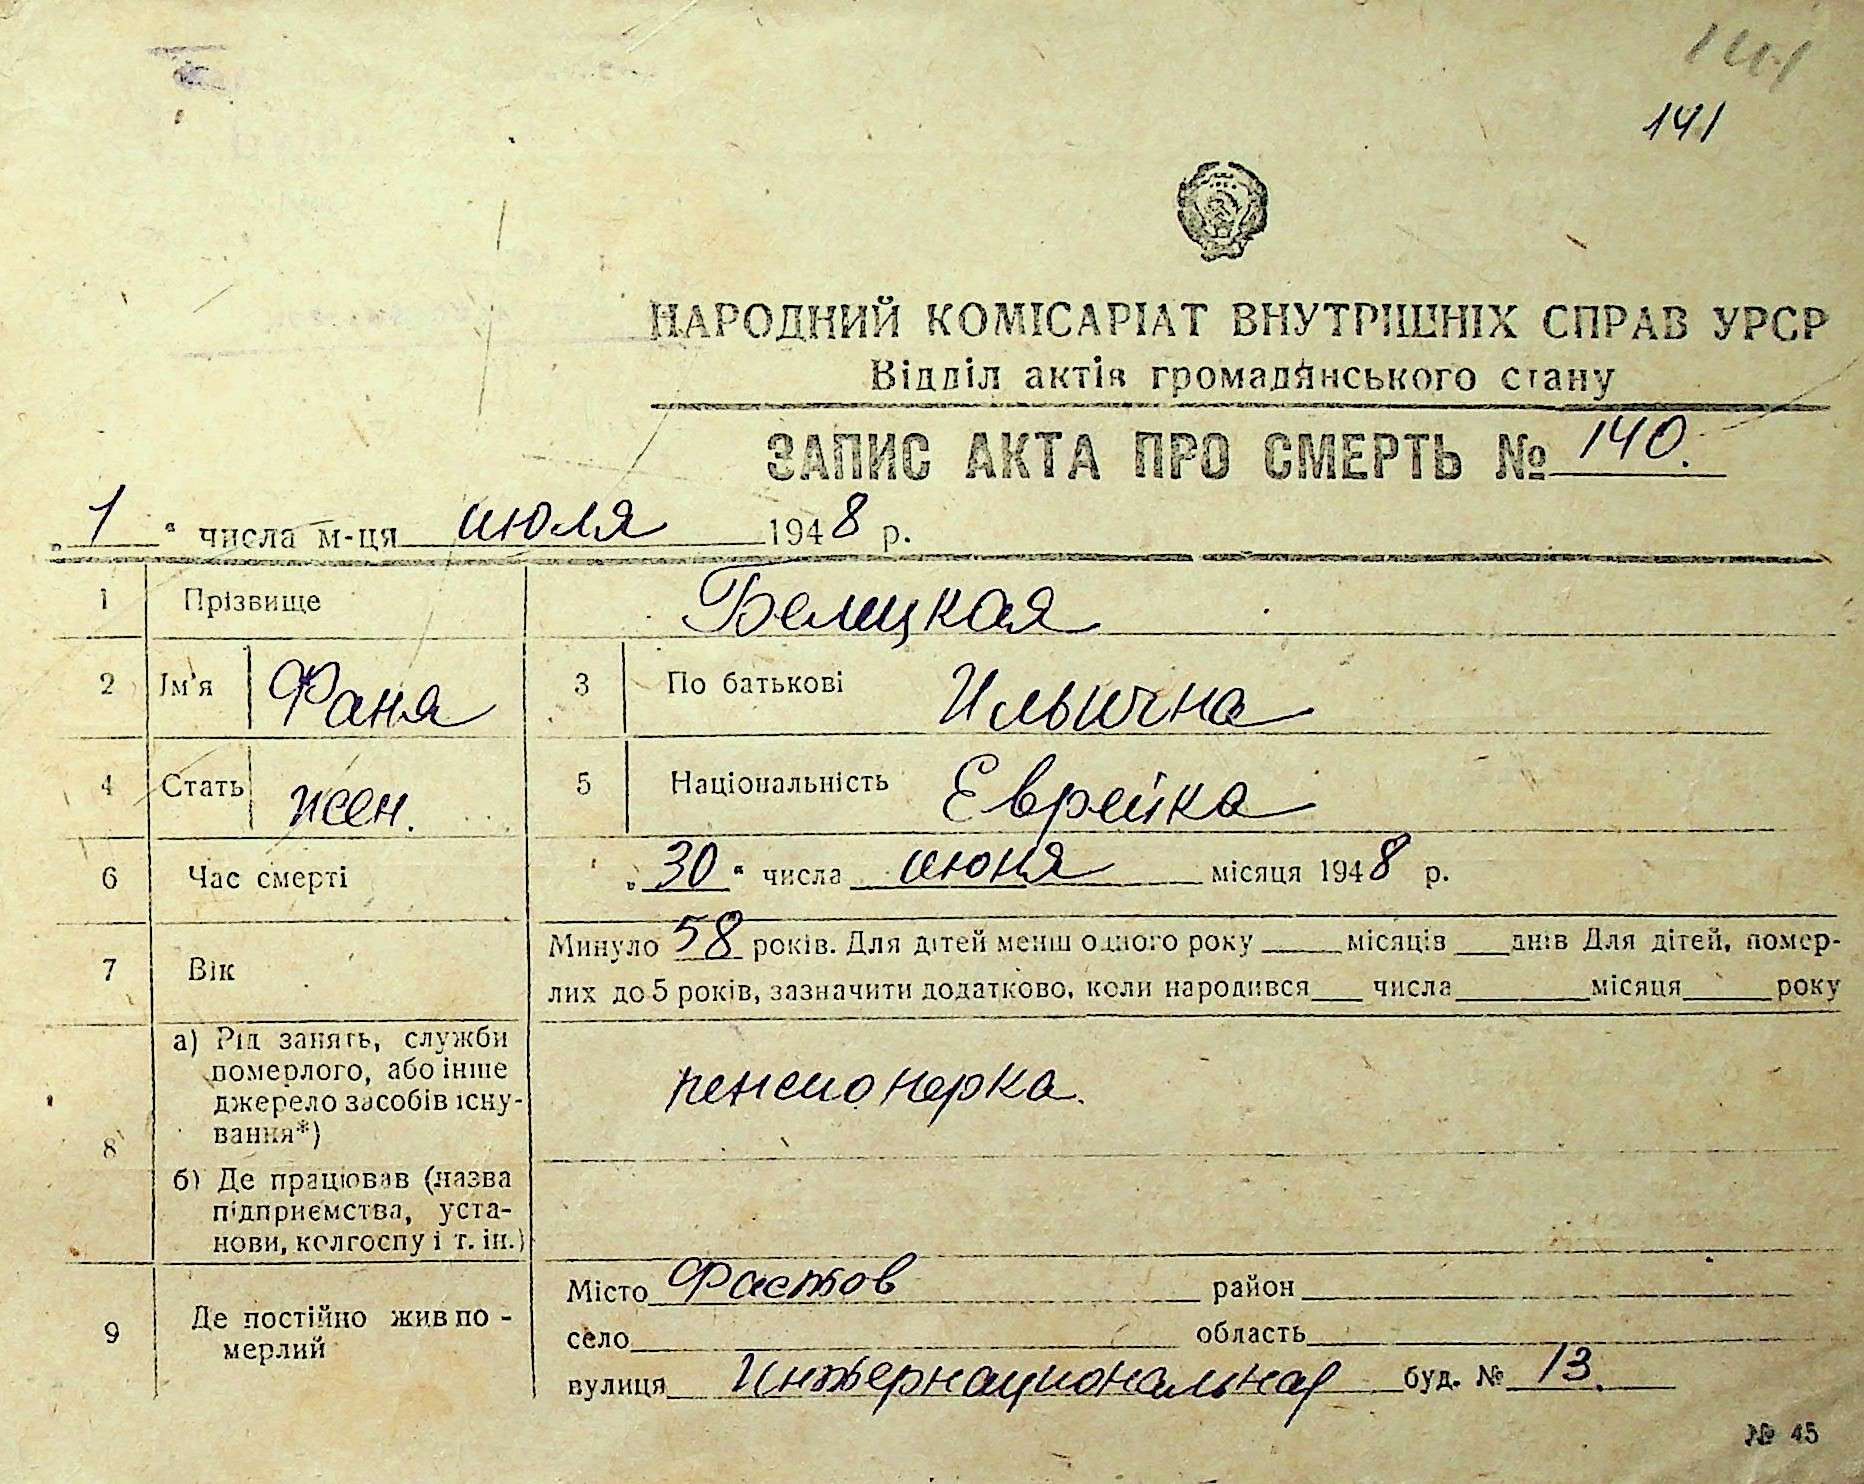 141
141
НАРОДНИЙ КОМІСАРІАТ ВНУТРІШНІХ СПРАВ УРСР
Відділ актів громадянського стану
ЗАПИС АКТА ПРО СМЕРТЬ № 140.
„ 1 “ числа м-ця июля 1948 р.
1 Прізвище Белицкая
2 Ім'я Фаня 3 По батькові Ильична
4 Стать жен. 5 Національність Еврейка
6 Час смерті „ 30 “ числа июня місяця 1948 р.
7 Вік Минуло 58 років. Для дітей менш одного року ____ місяців ___ днів Для дітей, помер-
лих до 5 років, зазначити додатково, коли народився ___ числа ____ місяця ____ року
8 а) Рід занять, служби
померлого, або інше
джерело засобів існу-
вання*)
пенсионерка.
б) Де працював (назва
підприємства, уста-
нови, колгоспу і т. ін.)
9 Де постійно жив по-
мерлий
Місто Фастов район
село область
вулиця Интернациональная буд. № 13.
№ 45